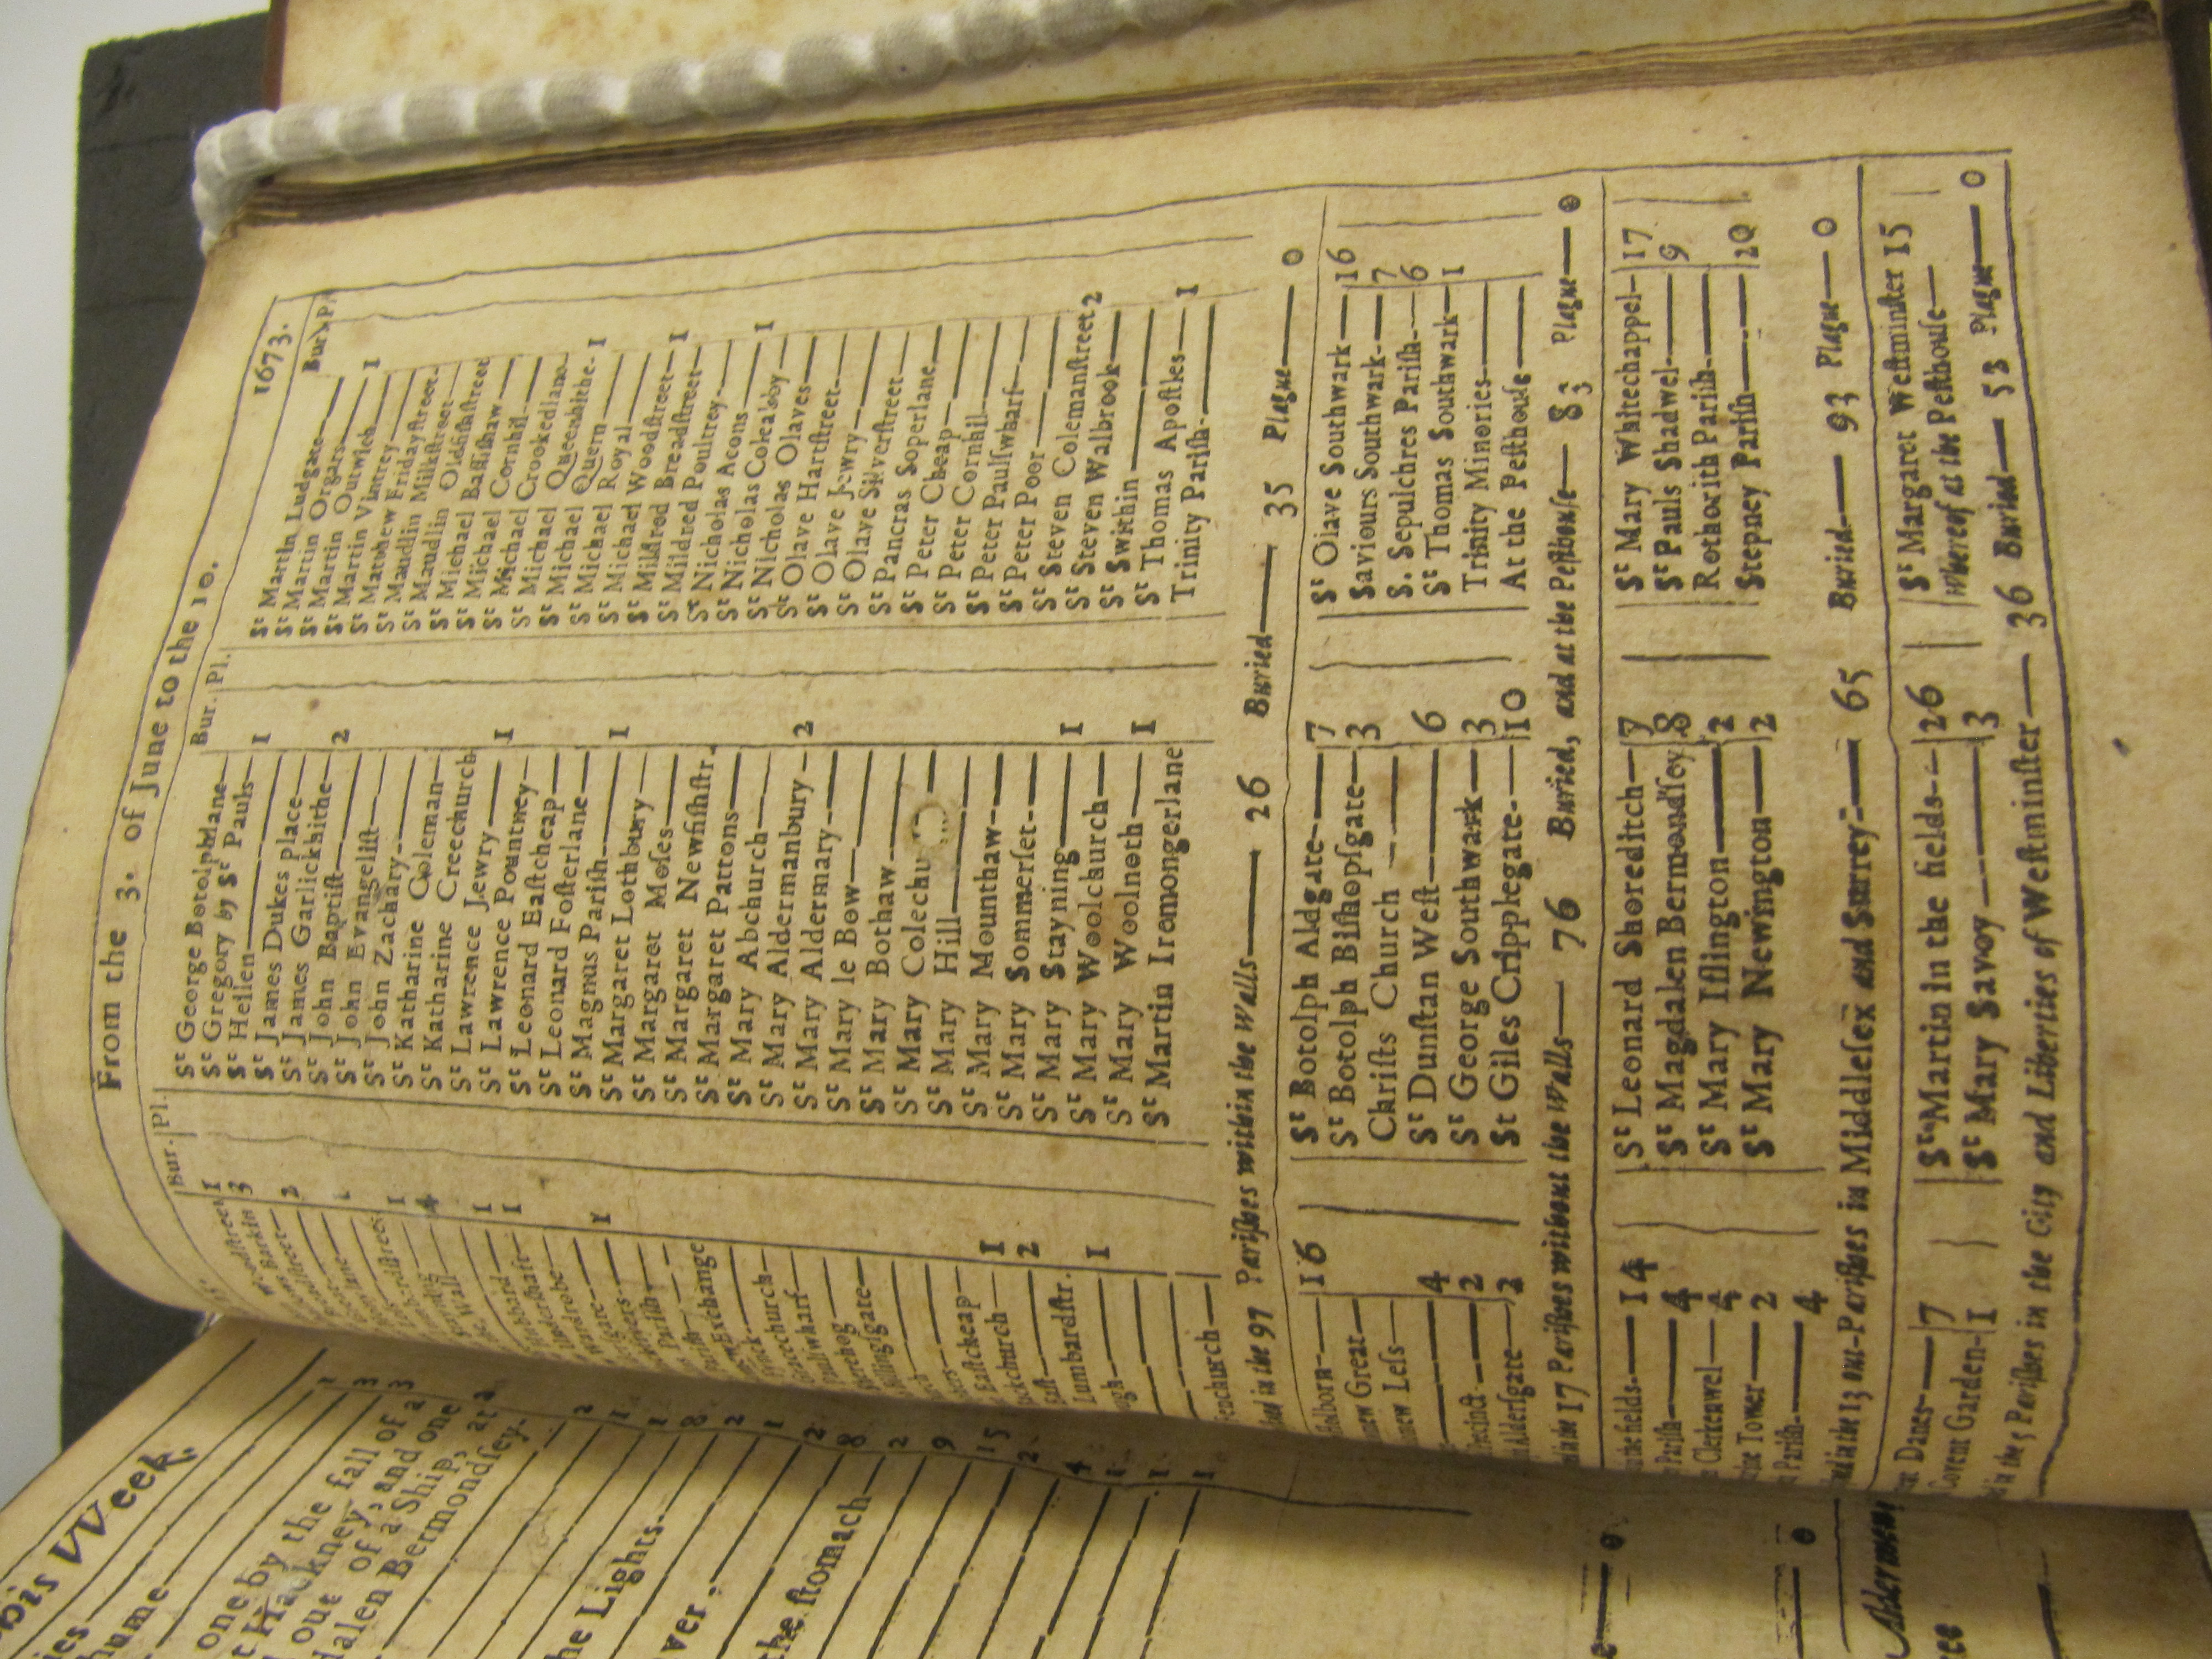 From the 3. of June to the 10. 1673.
Bur. Pl.
1
3
2
1
4
1
Wardrobe
1
Parish
Exchange
Gracechurch
Paulswharf
Sherehog
Billingsgate
Eastcheap
1
2
Lumbardstr.
1
Fenchurch
Bur. Pl.
St George Botolphlane
St Gregory by St Pauls 1
St Hellen
St James Dukes place
St James Garlickhithe 2
St John Baptist
St John Evangelist
St John Zachary
St Katharine Coleman
St Katharine Creechurch
St Lawrence Jewry 1
St Lawrence Pountney
St Leonard Eastcheap
St Leonard Fosterlane
St Magnus Parish 1
St Margaret Lothbury
St Margaret Moses
St Margaret Newfishstr.
St Margaret Pattons
St Mary Abchurch
St Mary Aldermanbury 2
St Mary Aldermary
St Mary le Bow
St Mary Bothaw
St Mary Colechu
St Mary Hill
St Mary Mounthaw
St Mary Sommerset
St Mary Stayning 1
St Mary Woolchurch
St Mary Woolnoth 1
St Martin Iremongerlane
Bur. P
St Martin Ludgate
St Martin Orgars 1
St Martin Outwich
St Martin Vintrey
St Matthew Fridaystreet
St Maudlin Milkstreet
St Maudlin Oldfishstreet
St Michael Bassishaw
St Michael Cornhil
St Michael Crookedlane
St Michael Queenhithe 1
St Michael Quern
St Michael Royal
St Michael Woodstreet 1
St Mildred Breadstreet
St Mildred Poultrey
St Nicholas Acons 1
St Nicholas Coleabby
St Nicholas Olaves
St Olave Hartstreet
St Olave Jewry
St Olave Silverstreet
St Pancras Soperlane
St Peter Cheap
St Peter Cornhil
St Peter Paulswharf
St Peter Poor
St Steven Colemanstreet 2
St Steven Walbrook
St Swithin
St Thomas Apostles 1
Trinity Parish
in the 97 Parishes within the Walls 26 Buried 35 Plague 0
Holborn 16
Great
Less
4
Precinct 2
Aldersgate 2
St Botolph Aldgate 7
St Botolph Bishopsgate 3
Christs Church
St Dunstan West 6
St George Southwark 3
St Giles Cripplegate 10
St Olave Southwark 16
Saviours Southwark 7
S. Sepulchres Parish 6
St Thomas Southwark 1
Trinity Minories
At the Pesthouse
in 17 Parishes without the Walls 76 Buried, and at the Pesthouse 83 Plague 0
fields 14
Parish 4
Clerkenwel 4
Tower 2
Parish 4
St Leonard Shoreditch 7
St Magdalen Bermondsey 8
St Mary Islington 2
St Mary Newington 2
St Mary Whitechappel 17
St Pauls Shadwel 9
Rothorith Parish
Stepney Parish 20
in the 13 out-Parishes in Middlesex and Surrey 65 Buried 93 Plague 0
Danes 7
Covent Garden 1
St Martin in the fields 26
St Mary Savoy 3
St Margaret Westminster 15
Whereof at the Pesthouse
in the 5 Parishes in the City and Liberties of Westminster 36 Buried 52 Plague 0
Week
1
3
3
one by the fall of a
Hackney, and one
out of a Ship, at 2
Bermondsey.
2
1
1
Lights 8
2
1
2
the stomach 8
2
9
15
2
4
1
1
1
0
0